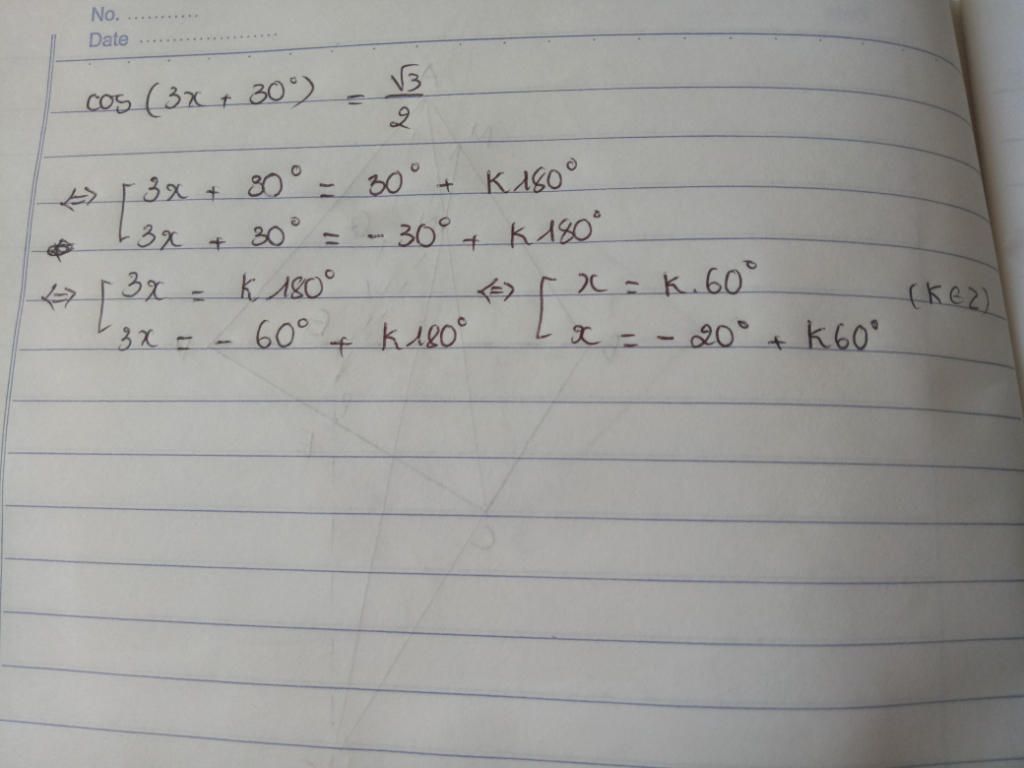 No. ...........
Date .....................
cos (3x + 30°) = √3/2
⇔ [ 3x + 30° = 30° + K180°
3x + 30° = -30° + K180°
⇔ [ 3x = K180° ⇔ [ x = K.60° (K∈Z)
3x = -60° + K180° x = -20° + K60°